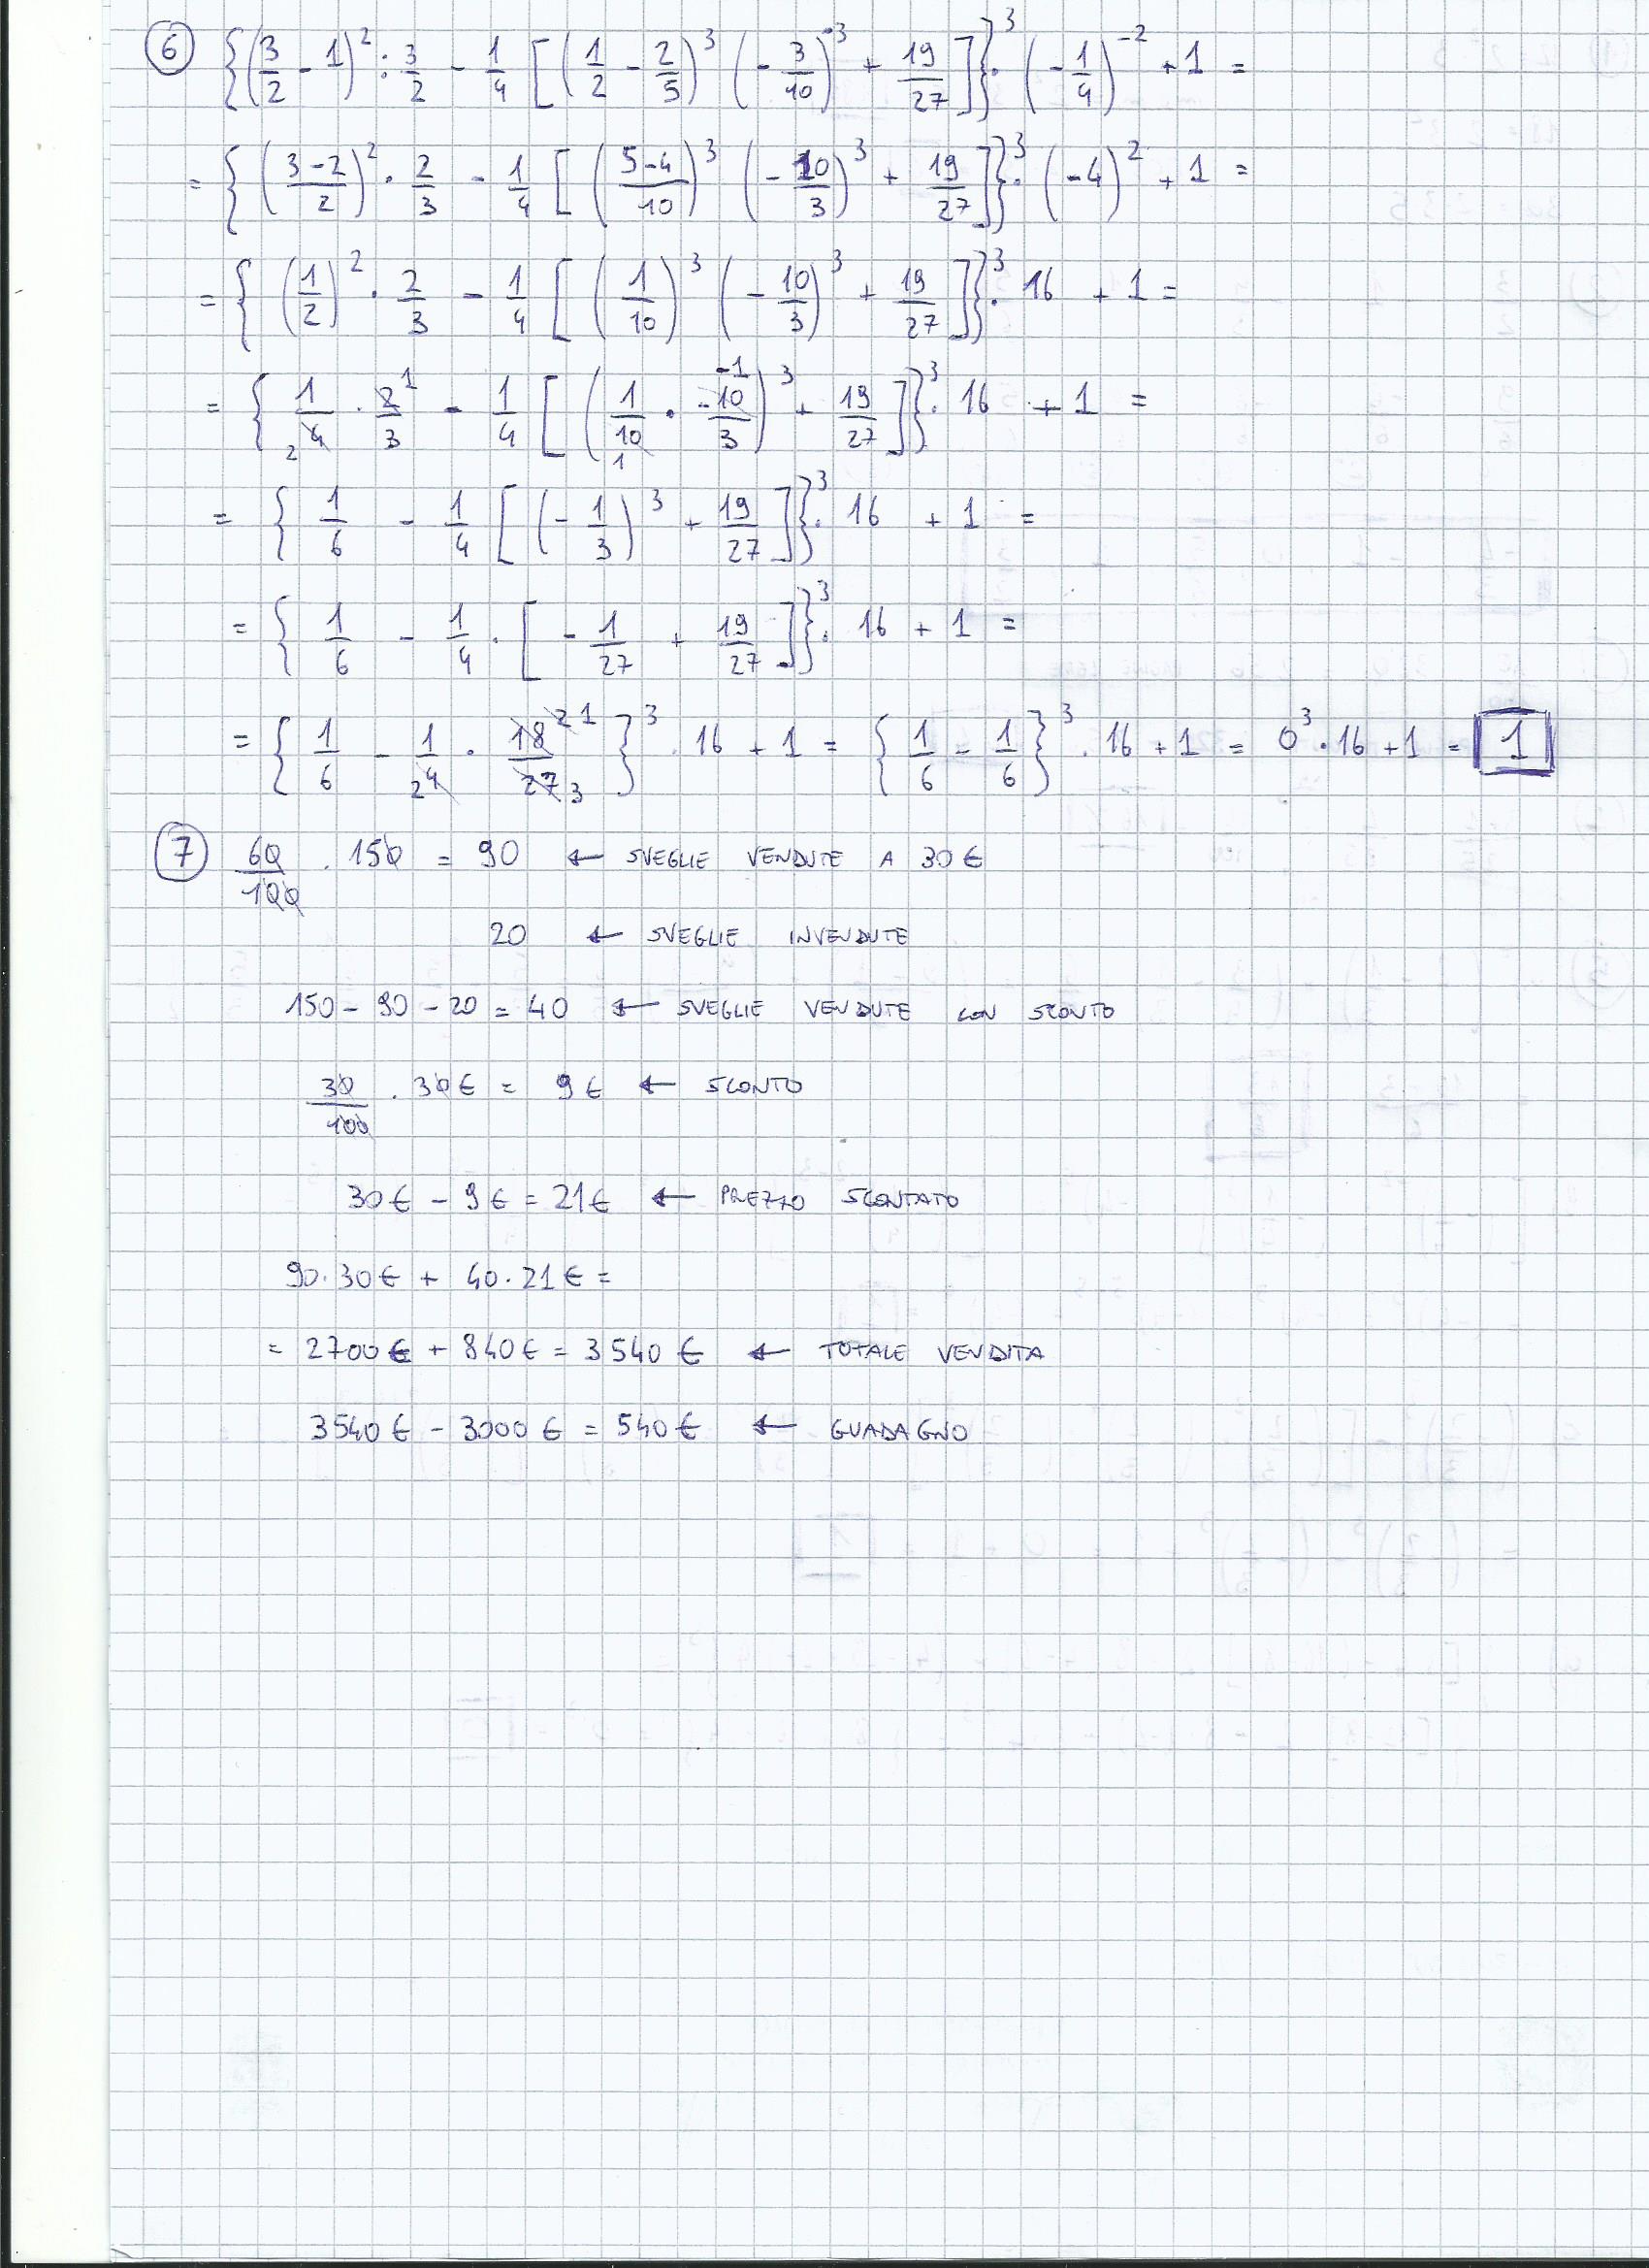 6 {(3/2 - 1)^2 : 3/2 - 1/4 [(1/2 - 2/5)^3 (-3/10)^-3 + 19/27]}^3 · (-1/4)^-2 + 1 =
= {((3-2)/2)^2 · 2/3 - 1/4 [((5-4)/10)^3 (-10/3)^3 + 19/27]}^3 · (-4)^2 + 1 =
= {(1/2)^2 · 2/3 - 1/4 [(1/10)^3 (-10/3)^3 + 19/27]}^3 · 16 + 1 =
= {1/4 2 · 2 1/3 - 1/4 [(1/10 1 · -10 -1/3)^3 + 19/27]}^3 · 16 + 1 =
= {1/6 - 1/4 [(-1/3)^3 + 19/27]}^3 · 16 + 1 =
= {1/6 - 1/4 · [-1/27 + 19/27]}^3 · 16 + 1 =
= {1/6 - 1/4 2 · 18 2 1/27 3}^3 · 16 + 1 = {1/6 - 1/6}^3 · 16 + 1 = 0^3 · 16 + 1 = 1
7 60/100 · 150 = 90 ← SVEGLIE VENDUTE A 30 €
20 ← SVEGLIE INVENDUTE
150 - 90 - 20 = 40 ← SVEGLIE VENDUTE CON SCONTO
30/100 · 30 € = 9 € ← SCONTO
30 € - 9 € = 21 € ← PREZZO SCONTATO
90 · 30 € + 40 · 21 € =
= 2700 € + 840 € = 3540 € ← TOTALE VENDITA
3540 € - 3000 € = 540 € ← GUADAGNO